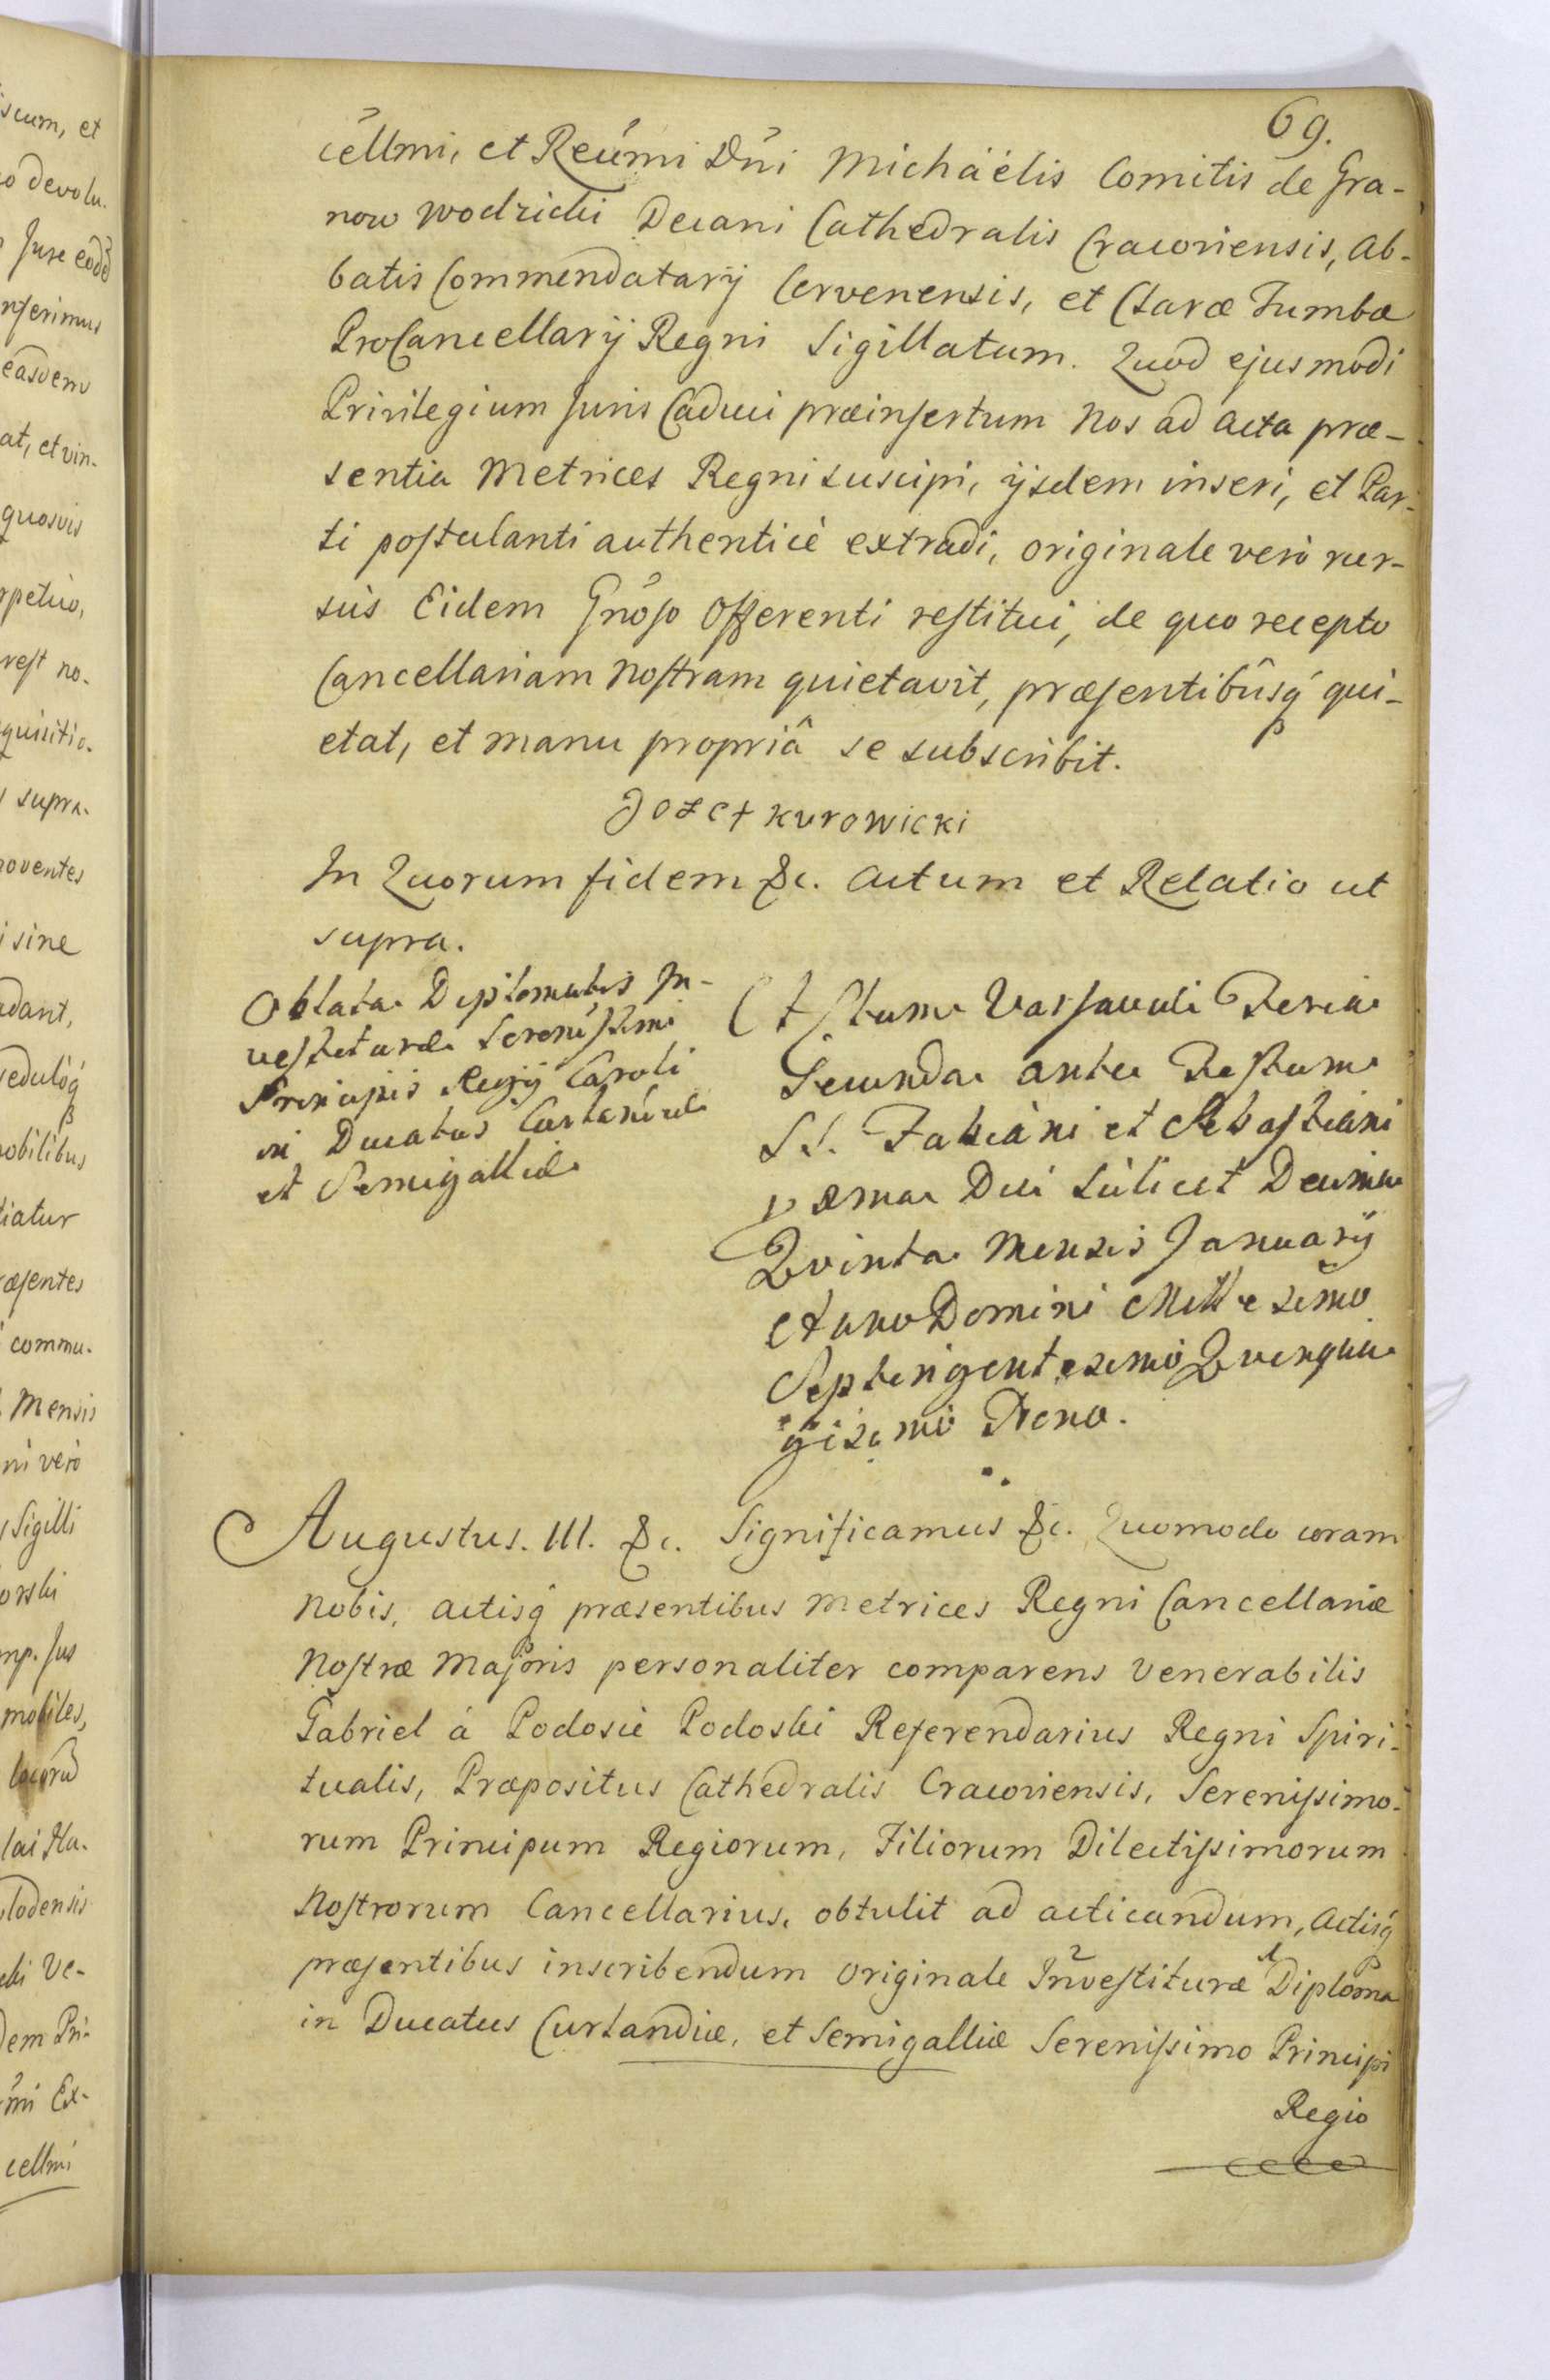 69.
cellmi, et Reũmi Dñi Michaëlis Comitis de Gra-
now Wodzicki Decani Cathedralis Cracoviensis, Ab-
batis Commendatarij Cervenensis, et Claræ Tumbæ
ProCancellarij Regni Sigillatum. Quod ejusmodi
Privilegium Juris Caduci præinsertum Nos ad Acta præ-
sentia Metrices Regni suscipi, ijsdem inseri, et Par-
ti postulanti authenticè extradi, originale verò rur-
sùs Eidem Gnõso Offerenti restitui, de quo recepto
Cancellariam Nostram quietavit, præsentibûsq́ qui-
etat, et manu propriâ se subscribit.
Jozef Kurowicki
In Quorum fidem &c. Actum et Relatio ut
supra.
Oblata Diplomatis In-
vestituræ Serenissimi
Principis Regij Caroli
in Ducatus Curlandiæ
et Semigalliæ
Actum Varsaviæ Feria
Secunda ante Festum
SS. Fabiani et Sebastiani
Dei Scilicet Decima
Quinta Mensis Januarij
Anno Domini Millesimo
Septingentesimo Quinqua-
gesimo Nono.
Augustus. III. &c. Significamus &c. Quomodo coram
Nobis, Actisq́ præsentibus Metrices Regni Cancellariæ
Nostræ Majoris personaliter comparens Venerabilis
Gabriel à Podosie Podoski Referendarius Regni Spiri-
tualis, Præpositus Cathedralis Cracoviensis, Serenissimo-
rum Principum Regiorum, Filiorum Dilectissimorum
Nostrorum Cancellarius, obtulit ad acticandum, Actisq́
præsentibus inscribendum Originale Investituræ 2 Diploma 1
in Ducatus Curlandiæ, et Semigalliæ Serenissimo Principi
Regio
iscum, et
o devolu-
Jure eodẽ
nferimus
easdem
at, et vin-
quosvis
rpetuo,
rest no-
quisitio-
supra-
noventes
i sine
adant,
sedulòq́
nobilibus
tiatur
ræsentes
commu-
Mensis
ni verò
Sigilli
orski
mp. Jus
mobiles,
locorũ
lai Ha-
lodensis
ki Ve-
dem Pri-
mi Ex-
cellmi